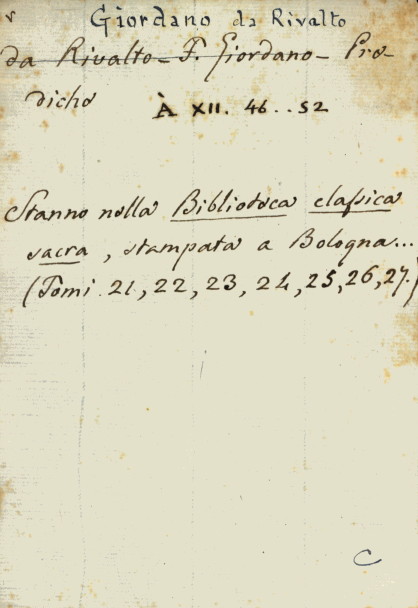 Giordano da Rivalto
da Rivalto - F. Giordano - Pre-
diche
À XII. 46..52
Stanno nella Biblioteca classica
sacra, stampata a Bologna...
(Tomi. 21, 22, 23, 24, 25, 26, 27.)
C